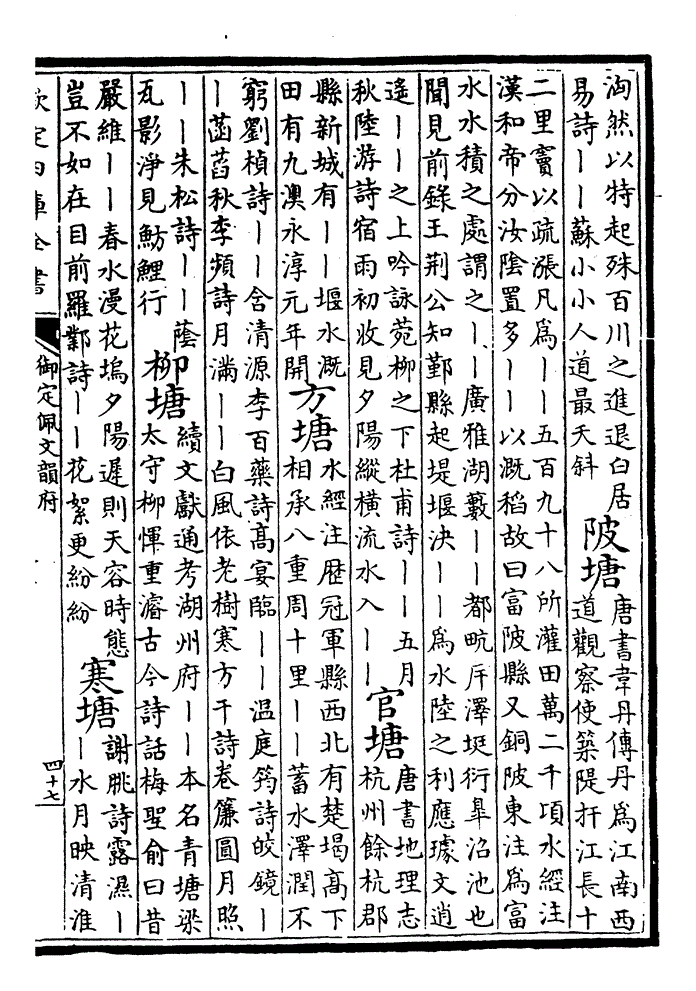 淘然以特起殊百川之進退白居
易詩丨丨蘇小小人道最夭斜
陂塘
唐書韋丹傳丹為江南西
道觀察使築隄扞江長十
二里竇以疏漲凡為丨丨五百九十八所灌田萬二千頃水經注
漢和帝分汝隂置多丨丨以溉稻故曰富陂縣又銅陂東注為富
水水積之處謂之丨丨廣雅湖籔丨丨都㽘㡿澤埏衍皐沼池也
聞見前錄王荆公知鄞縣起堤堰決丨丨為水陸之利應璩文逍
遙丨丨之上吟詠菀柳之下杜甫詩丨丨五月
秋陸游詩宿雨初收見夕陽縱橫流水入丨丨
官塘
唐書地理志
杭州餘杭郡
縣新城有丨丨堰水溉
田有九澳永淳元年開
方塘
水經注歷冠軍縣西北有楚堨髙下
相承八重周十里丨丨蓄水澤潤不
窮劉楨詩丨丨含清源李百藥詩髙宴臨丨丨温庭筠詩皎鏡丨
丨菡萏秋李頻詩月滿丨丨白風依老樹寒方干詩卷簾圓月照
丨丨朱松詩丨丨蔭
瓦影淨見魴鯉行
柳塘
續文獻通考湖州府丨丨本名青塘梁
太守柳惲重濬古今詩話梅聖俞曰昔
嚴維丨丨春水漫花塢夕陽遲則天容時態
豈不如在目前羅鄴詩丨丨花絮更紛紛
寒塘
謝朓詩露濕丨
丨水月映清淮
欽定四庫全書
御定佩文韻府
四十七